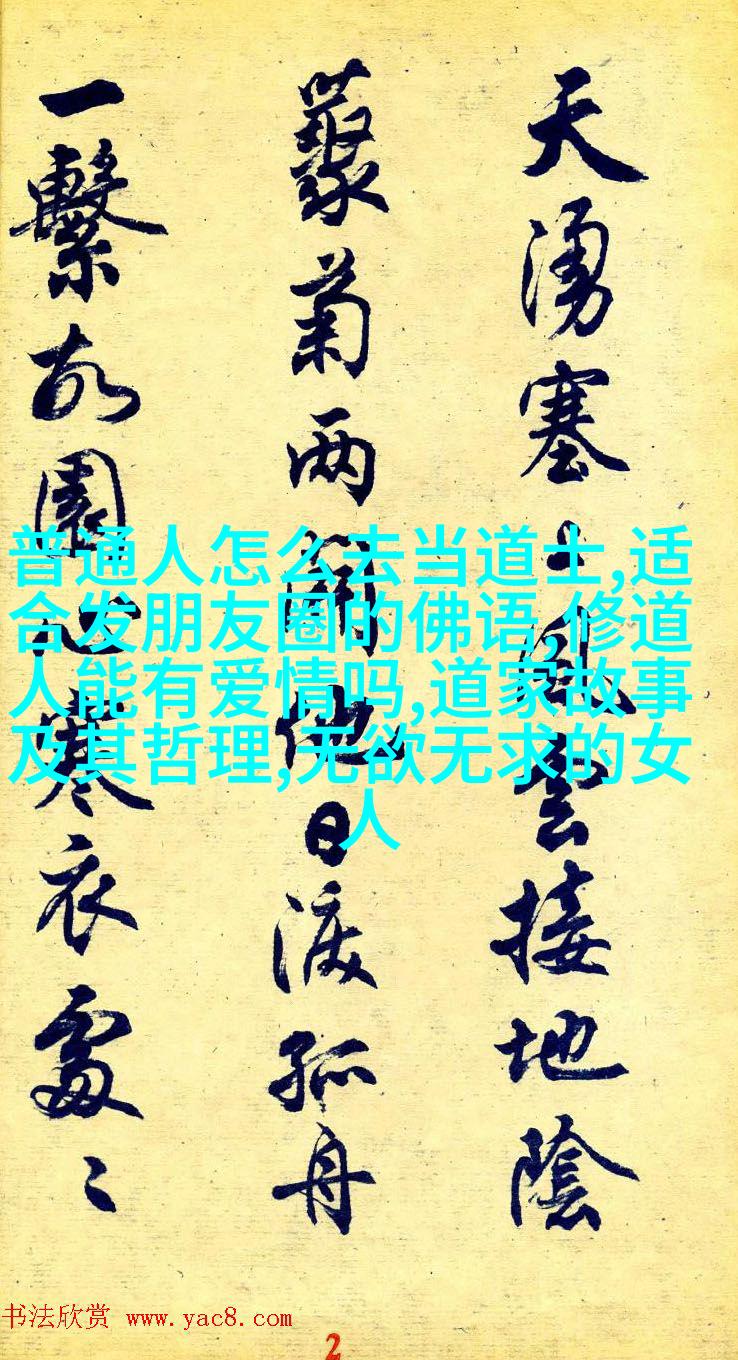 天湧塞上風雲接地陰
叢菊两開他日淚孤舟
一繫故園心寒衣處〻
普通人怎么去当道士,适
合发朋友圈的佛语,修道
人能有爱情吗,道家故事
及其哲理,无欲无求的女
人
书法欣赏 www.yac8.com
2